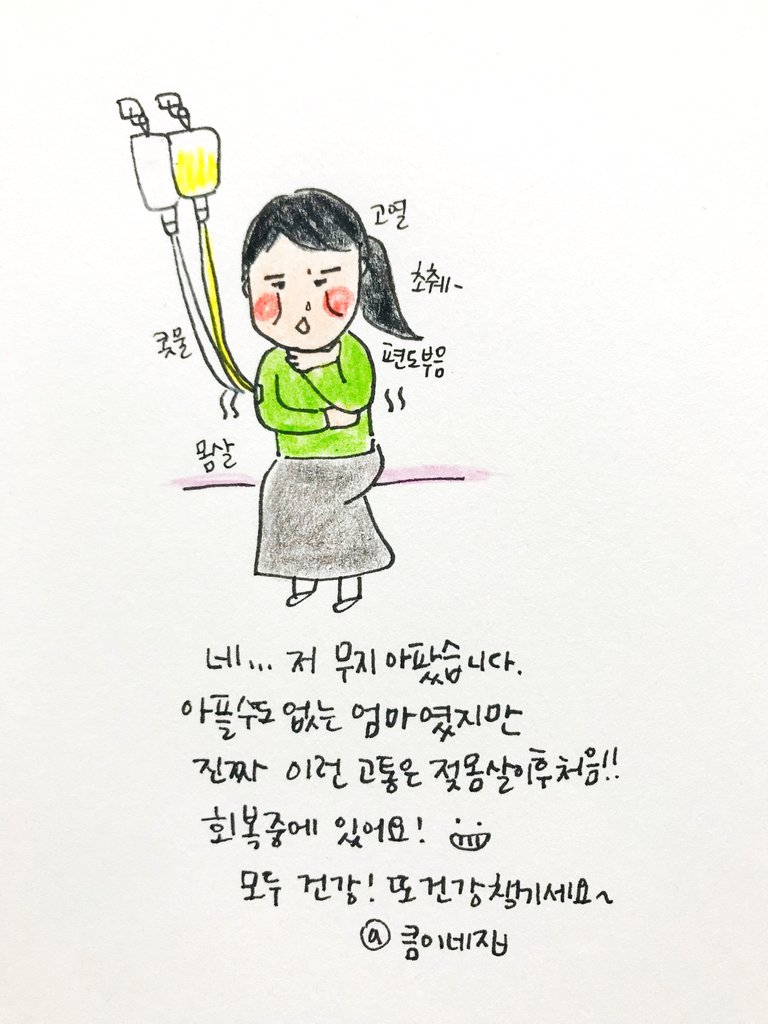 고열
초췌~
콧물
편도부음
몸살
네... 저 무지 아팠습니다.
아플수도 없는 엄마였지만
진짜 이런 고통은 젖몸살이후 처음!!
회복중에 있어요!
모두 건강! 또 건강챙기세요~
@콤이네집